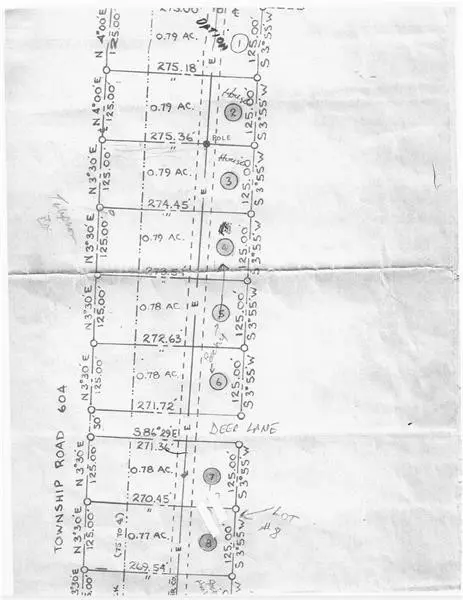 273.00'
DATION
①
N 4°00'E
125.
0.79 AC.
125.00'
S 3°55'W
275.18'
House
N 4°00'E
125.00'
0.79 AC.
E
2
125.00'
S 3°55'W
275.36'
POLE
House
N 3°30'E
125.00'
0.79 AC.
3
125.00'
S 3°55'W
274.45'
"
E
N 3°30'E
125.00'
0.79 AC.
4
125.00'
S 3°55'W
273.54'
"
E
N 3°30'E
125.00'
0.78 AC.
5
125.00'
S 3°55'W
272.63'
"
N 3°30'E
125.00'
0.78 AC.
6
125.00'
S 3°55'W
271.72'
"
E
30'
DEER LANE
S 86°29'E
271.36'
TOWNSHIP ROAD 604
N 3°30'E
125.00'
0.78 AC.
7
125.00'
S 3°55'W
270.45'
"
LOT
#8
N 3°30'E
125.00'
0.77 AC.
(75 TO ℄)
E
8
125.00'
S 3°55'W
269.54'
"
3°30'E
5.00'